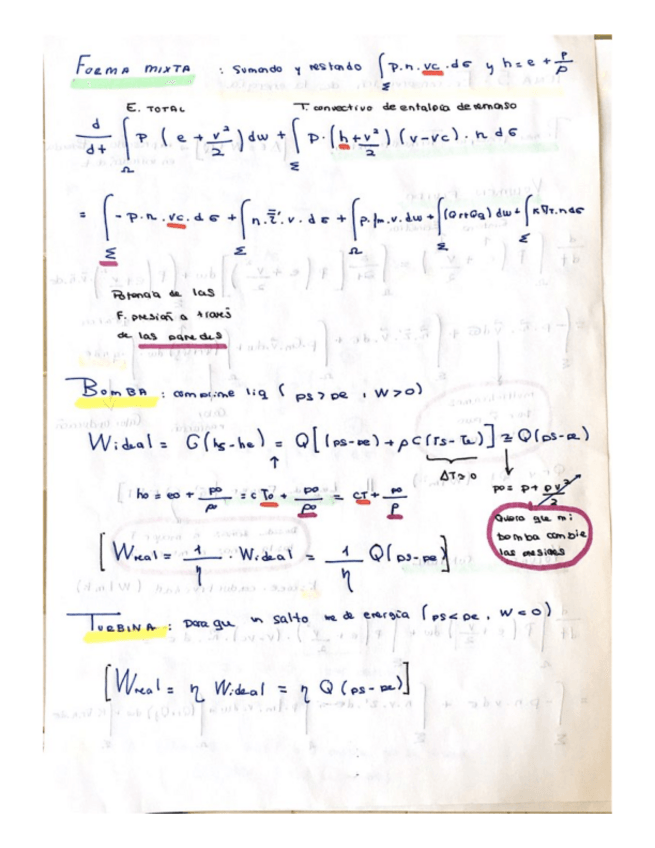 FORMA MIXTA : Sumando y restando ∫_Σ p.n.vc.dσ y h = e + p/ρ
E. TOTAL T. convectivo de entalpía de remanso
d/dt ∫_Ω ρ (e + v²/2) dw + ∫_Σ ρ.(h + v²/2) (v-vc).n dσ
= ∫_Σ -p.n.vc.dσ + ∫_Σ n.τ̿'.v.dσ + ∫_Ω ρ.fm.v.dw + ∫_Σ (Qr+Qq) dw + ∫_Σ K∇T.n dσ
Potencia de las
F. presión a través
de las paredes
BOMBA : comprime liq ( ps > pe , W > 0)
Wideal = G(hs-he) = Q[(ps-pe) + ρc(Ts-Te)] ≅ Q(ps-pe)
↑ ΔT>0 ↓
po = p + ρv²/2
ho = eo + po/ρo = cTo + po/ρo = cT + po/ρ
Quiero que mi
bomba cambie
las presiones
[Wreal = 1/η . Wideal = 1/η Q(ps-pe)]
TURBINA : para que un salto me de energía (ps<pe, W<0)
[Wreal = η Wideal = η Q (ps-pe)]